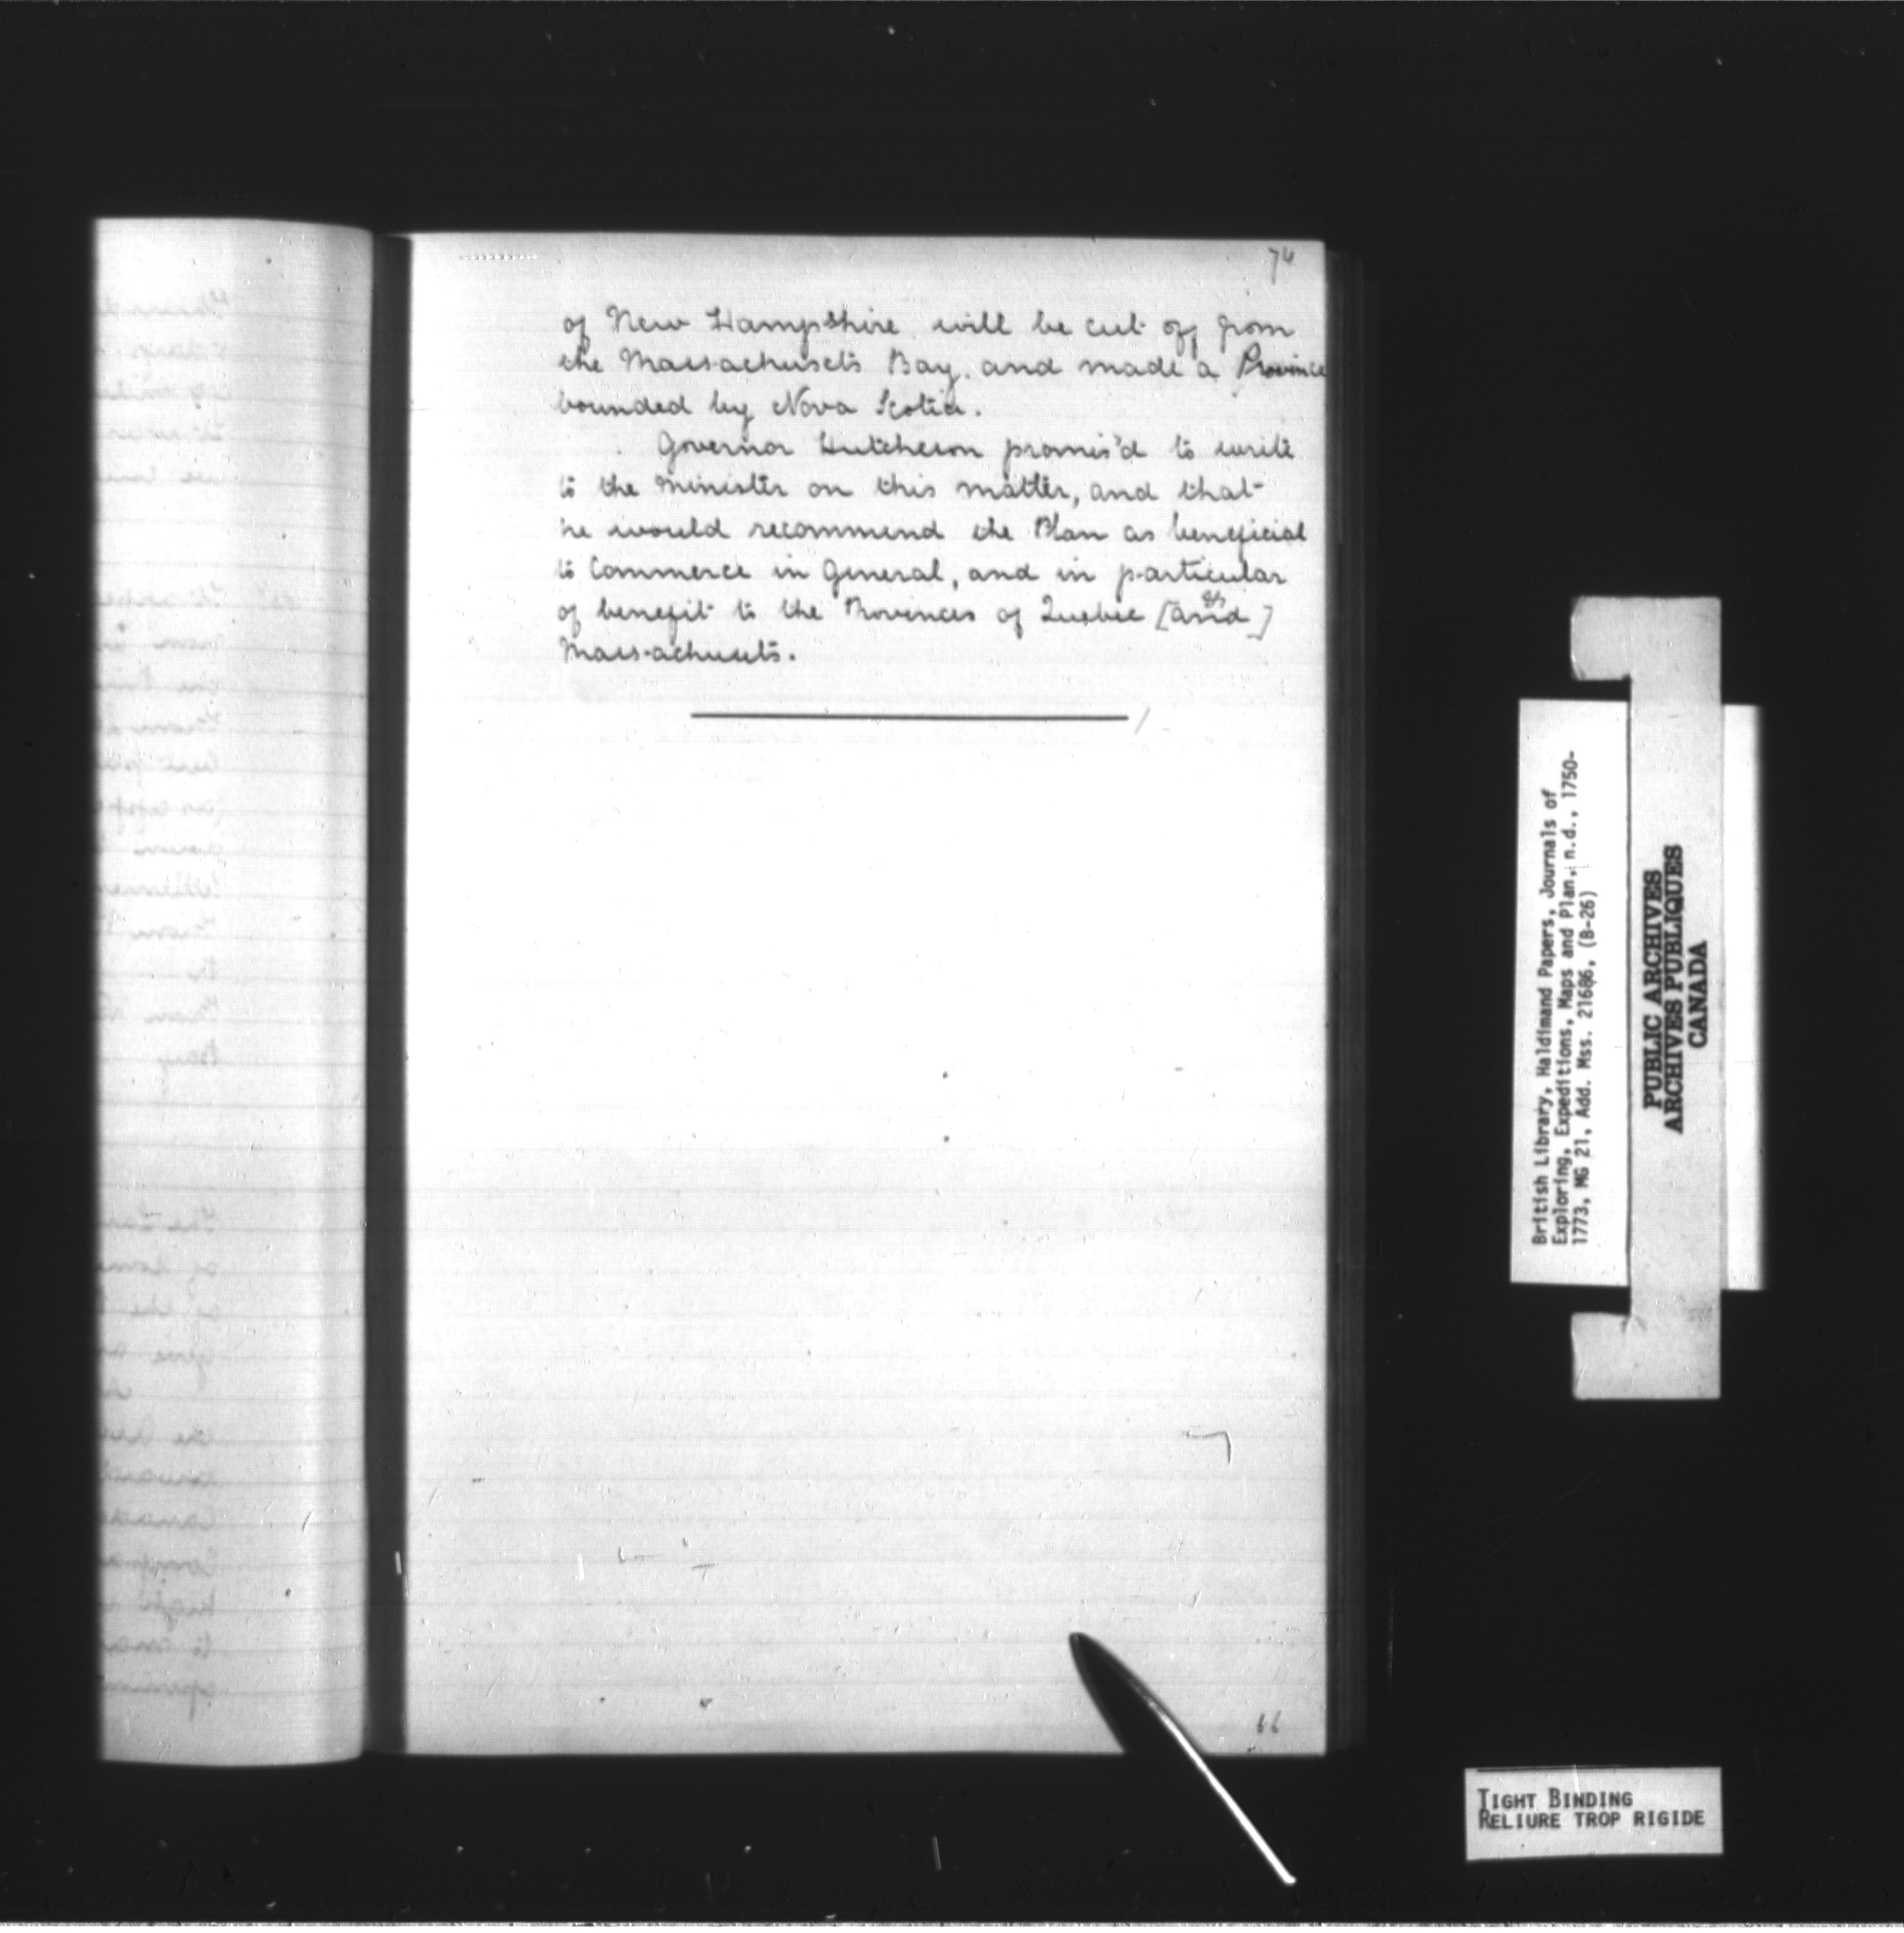 74
of New Hampshire will be cut off from
the Massachusets Bay, and made a Province
bounded by Nova Scotia.
Governor Hutcheson promis'd to write
to the Minister on this matter, and that
he would recommend the Plan as beneficial
to Commerce in General, and in particular
of benefit to the Provinces of Quebec [and]
Massachusets.
66
British Library, Haldimand Papers, Journals of
Exploring, Expeditions, Maps and Plan, n.d., 1750-
1773, MG 21, Add. Mss. 21686, (B-26)
PUBLIC ARCHIVES
ARCHIVES PUBLIQUES
CANADA
TIGHT BINDING
RELIURE TROP RIGIDE